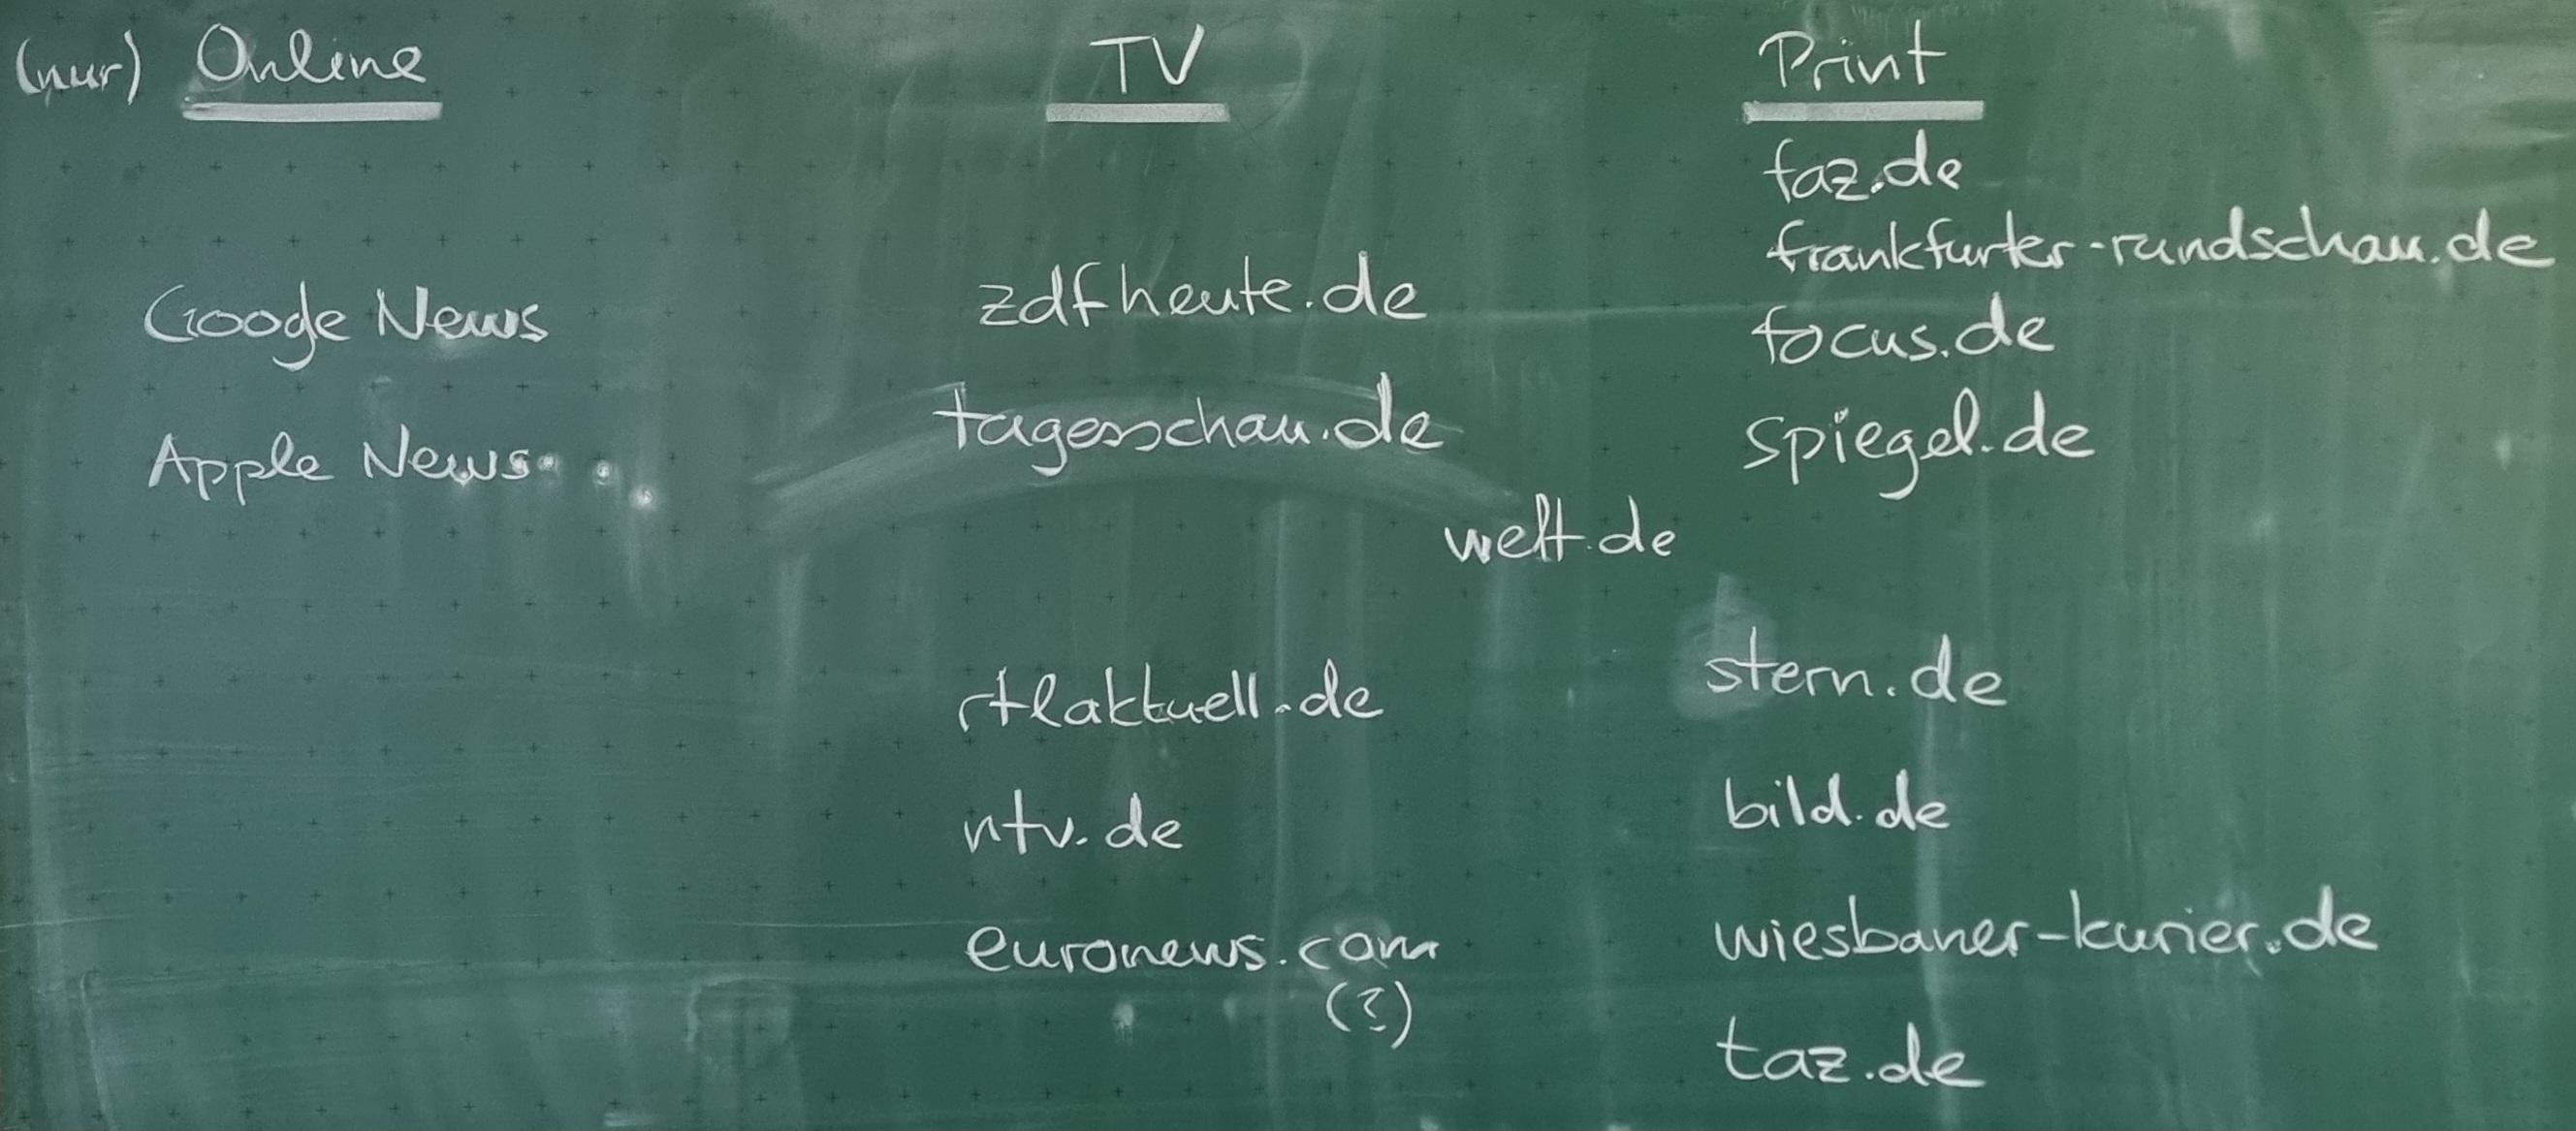 (nur) Online
Googe News
Apple News
TV
zdfheute.de
tagesschau.de
welt.de
rtlaktuell.de
ntv.de
euronews.com
(?)
Print
faz.de
frankfurter-rundschau.de
focus.de
spiegel.de
stern.de
bild.de
wiesbaner-kurier.de
taz.de